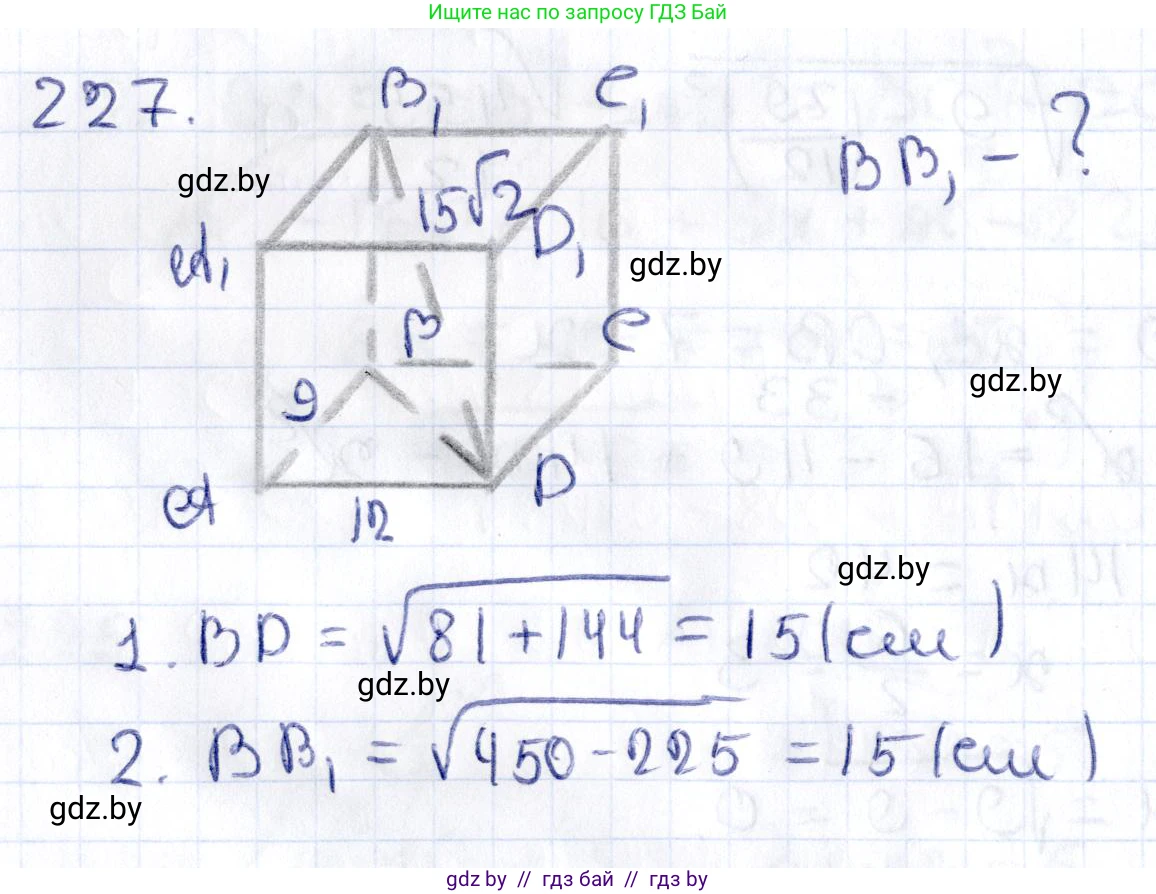 Ищите нас по запросу ГДЗ Бай
227.
B₁
C₁
BB₁ - ?
gdz.by
15√2
A₁
D₁
gdz.by
B
C
gdz.by
9
A
D
12
gdz.by
1. BD = √81+144 = 15(см)
gdz.by
2. BB₁ = √450-225 = 15(см)
gdz.by
gdz.by // гдз бай // гдз by